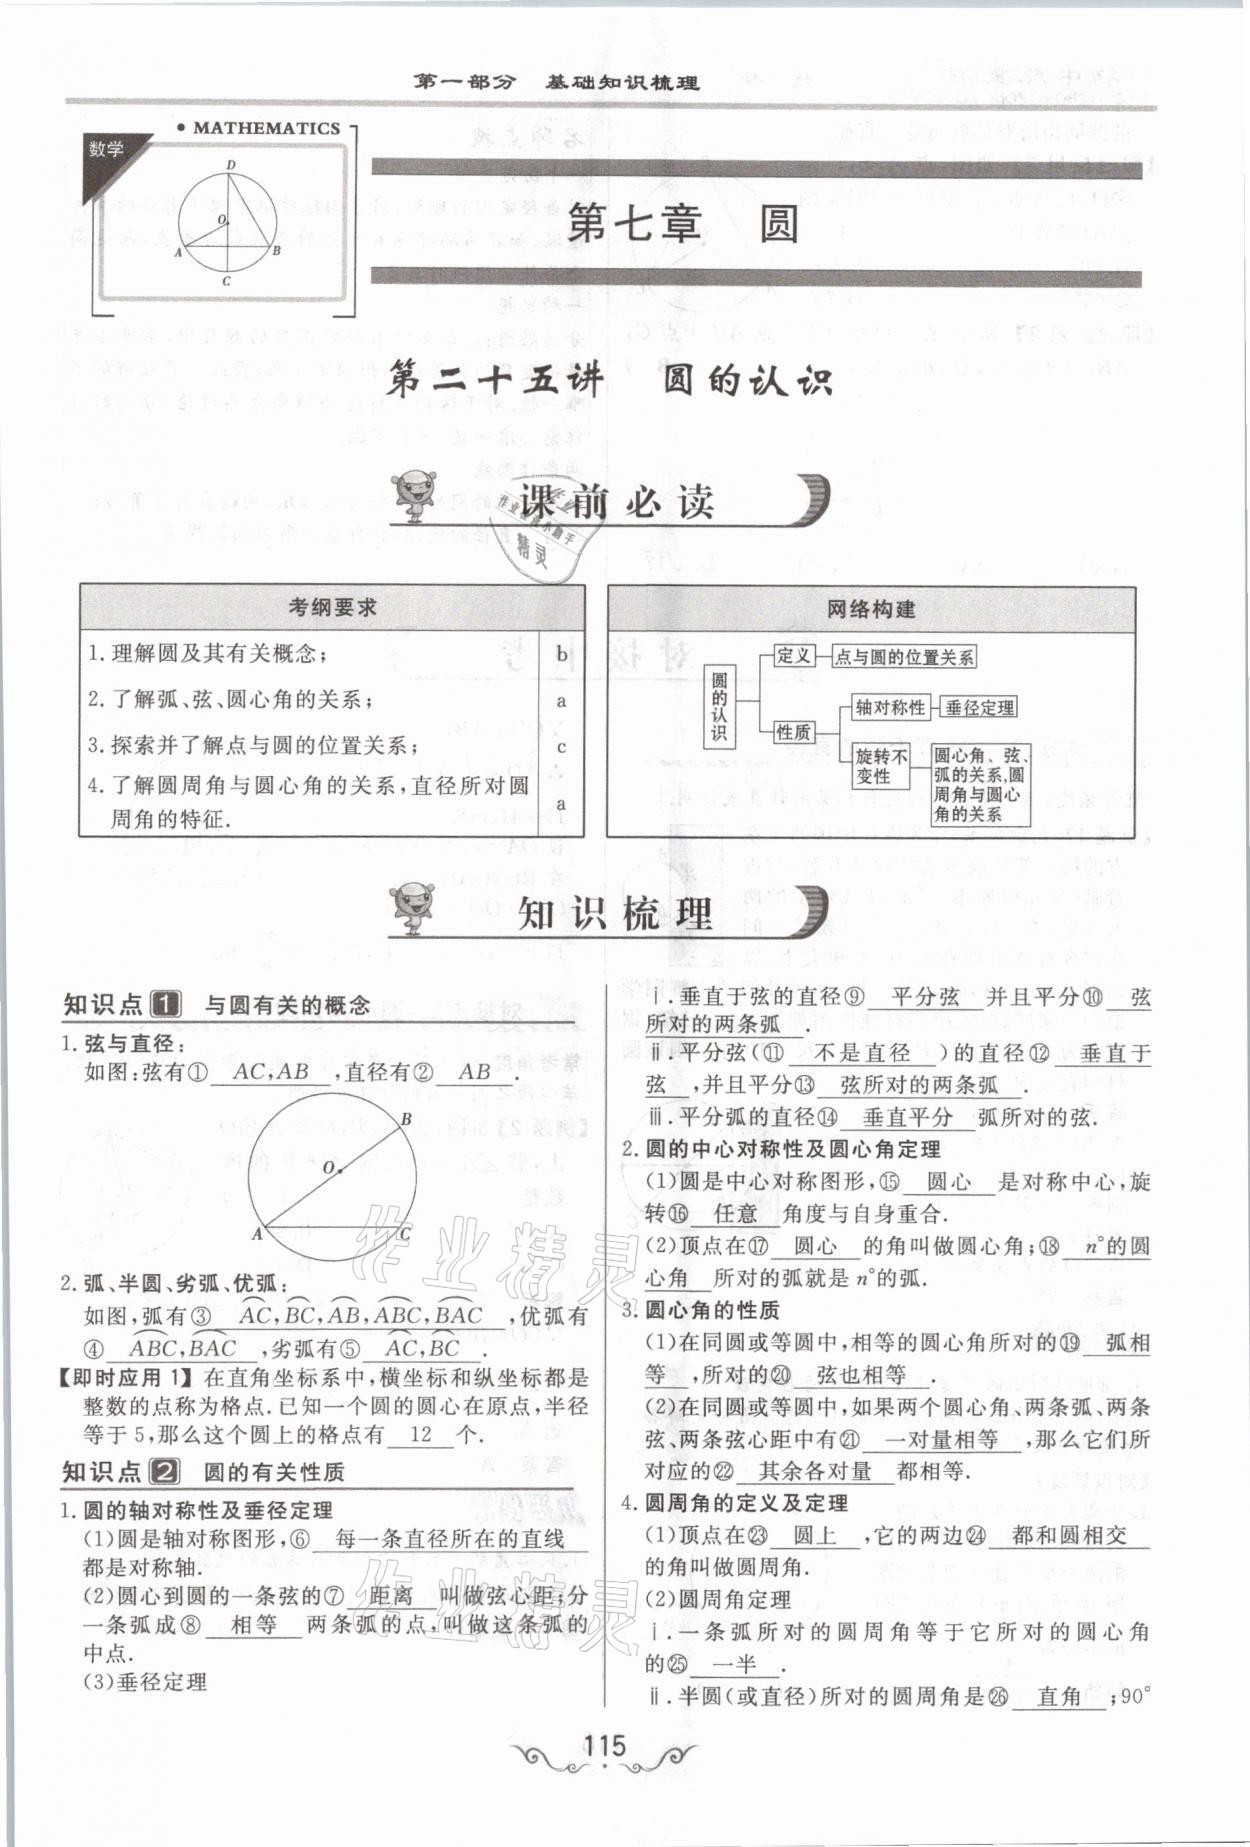 第一部分 基础知识梳理
• MATHEMATICS
数学
D
O
A
B
C
第七章 圆
第二十五讲 圆的认识
课前必读
考纲要求
1.理解圆及其有关概念; b
2.了解弧、弦、圆心角的关系; a
3.探索并了解点与圆的位置关系; c
4.了解圆周角与圆心角的关系,直径所对圆
周角的特征. a
网络构建
圆的认识
定义
点与圆的位置关系
性质
轴对称性
垂径定理
旋转不
变性
圆心角、弦、
弧的关系,圆
周角与圆心
角的关系
作业精灵
精灵
知识梳理
知识点1 与圆有关的概念
1.弦与直径:
如图:弦有① AC,AB ,直径有② AB .
B
O
A
C
2.弧、半圆、劣弧、优弧:
如图,弧有③ AC,BC,AB,ABC,BAC ,优弧有
④ ABC,BAC ,劣弧有⑤ AC,BC .
【即时应用1】在直角坐标系中,横坐标和纵坐标都是
整数的点称为格点.已知一个圆的圆心在原点,半径
等于5,那么这个圆上的格点有 12 个.
知识点2 圆的有关性质
1.圆的轴对称性及垂径定理
(1)圆是轴对称图形,⑥ 每一条直径所在的直线
都是对称轴.
(2)圆心到圆的一条弦的⑦ 距离 叫做弦心距;分
一条弧成⑧ 相等 两条弧的点,叫做这条弧的
中点.
(3)垂径定理
ⅰ.垂直于弦的直径⑨ 平分弦 并且平分⑩ 弦
所对的两条弧 .
ⅱ.平分弦(⑪ 不是直径 )的直径⑫ 垂直于
弦 ,并且平分⑬ 弦所对的两条弧 .
ⅲ.平分弧的直径⑭ 垂直平分 弧所对的弦.
2.圆的中心对称性及圆心角定理
(1)圆是中心对称图形,⑮ 圆心 是对称中心,旋
转⑯ 任意 角度与自身重合.
(2)顶点在⑰ 圆心 的角叫做圆心角;⑱ n°的圆
心角 所对的弧就是n°的弧.
3.圆心角的性质
(1)在同圆或等圆中,相等的圆心角所对的⑲ 弧相
等 ,所对的⑳ 弦也相等 .
(2)在同圆或等圆中,如果两个圆心角、两条弧、两条
弦、两条弦心距中有㉑ 一对量相等 ,那么它们所
对应的㉒ 其余各对量 都相等.
4.圆周角的定义及定理
(1)顶点在㉓ 圆上 ,它的两边㉔ 都和圆相交
的角叫做圆周角.
(2)圆周角定理
ⅰ.一条弧所对的圆周角等于它所对的圆心角
的㉕ 一半 .
ⅱ.半圆(或直径)所对的圆周角是㉖ 直角 ;90°
作业精灵
作业精灵
115